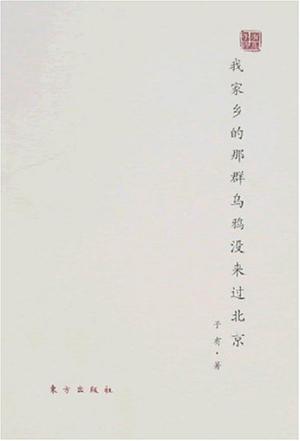 我家乡的那群乌鸦没来过北京
于有·著
东方出版社